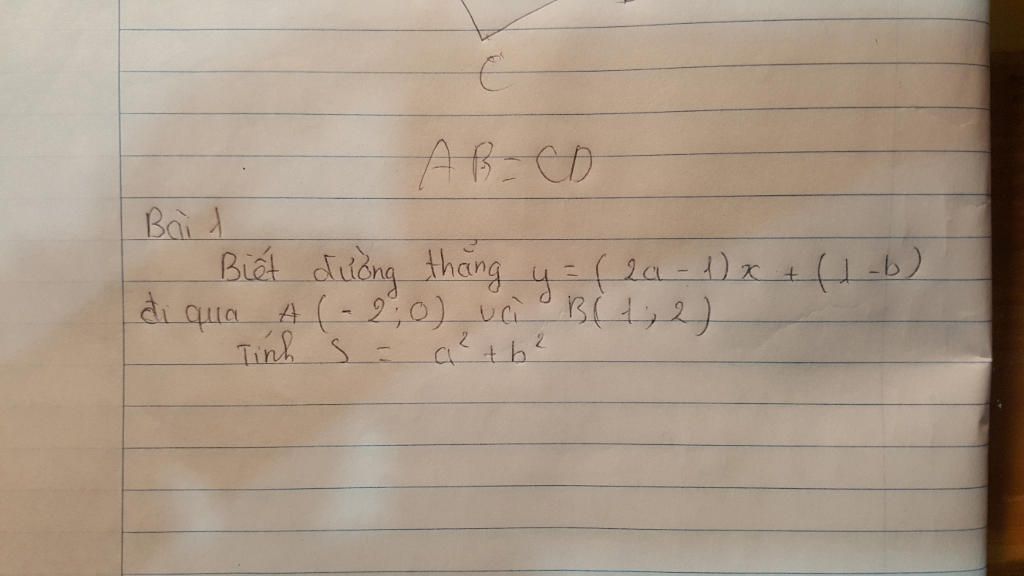 C
AB = CD
Bài 1
Biết đường thẳng y = (2a - 1)x + (1 - b)
đi qua A(-2; 0) và B(1; 2)
Tính S = a² + b²